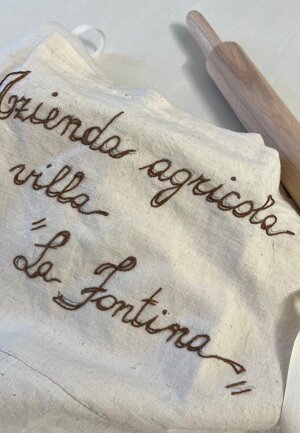 Azienda agricola
villa
"La Fontina"